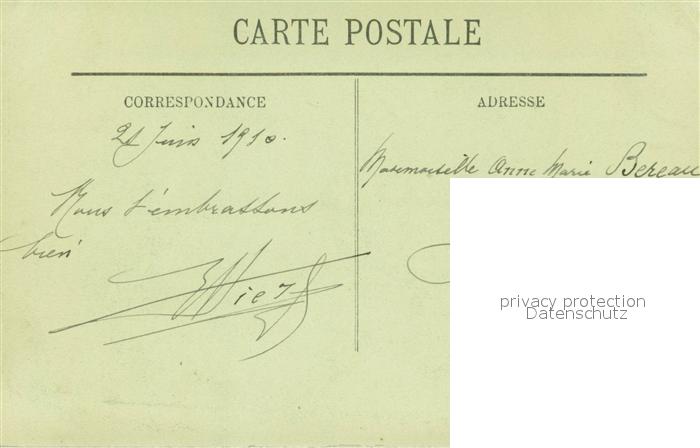 CARTE POSTALE
CORRESPONDANCE
ADRESSE
21 Juin 1910.
Nous t'embrassons
bien
Mademoiselle Anne Marie Bereau
privacy protection
Datenschutz